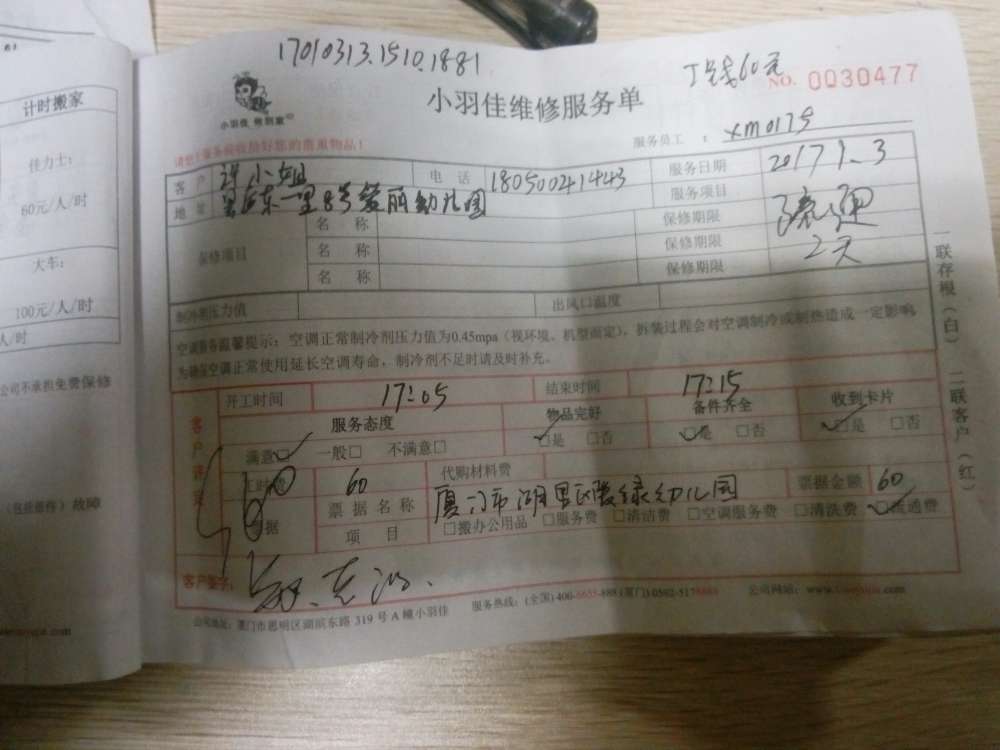 17010313.1510.1881
丁线60元
NO. 0030477
小羽佳维修服务单
小羽佳 传创家
服务员工：xm0179
客户 小姐 电话 18050041443 服务日期 2017.1.3
地址 里东一里8号 幼儿园 服务项目 疏通
保修项目 名称 保修期限 2天
名称 保修期限
名称 保修期限
制冷剂压力值 出风口温度
空调服务温馨提示：空调正常制冷剂压力值为0.45mpa（视环境、机型而定），拆装过程会对空调制冷或制热造成一定影响
为确保空调正常使用延长空调寿命，制冷剂不足时请及时补充。
客户评价
开工时间 17:05 结束时间 17:15
服务态度 物品完好 备件齐全 收到卡片
满意□ 一般□ 不满意□ □是 □否 □是 □否 □是 □否
工时费 60 代购材料费
票据 票据名称 厦门市湖里区 绿幼儿园 票据金额 60
项目 □搬办公用品 □服务费 □清洁费 □空调服务费 □清洗费 □疏通费
客户签字：
公司地址：厦门市思明区湖滨东路 319 号 A 幢小羽佳 服务热线：(全国) 400-6655-888 (厦门) 0592-5178888 公司网站：
一联存根（白） 二联客户（红）
计时搬家
佳力士：
60元/人/时
大车：
100元/人/时
人/时
公司不承担免费保修
（包括部件）故障